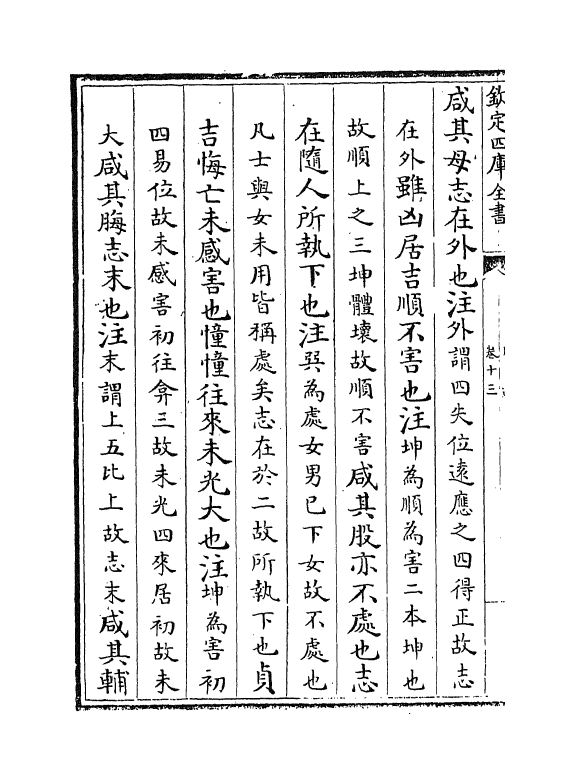 欽定四庫全書
卷十三
咸其母志在外也注外謂四失位遠應之四得正故志
在外雖凶居吉順不害也注坤為順為害二本坤也
故順上之三坤體壞故順不害咸其股亦不處也志
在隨人所執下也注巽為處女男已下女故不處也
凡士與女未用皆稱處矣志在於二故所執下也貞
吉悔亡未感害也憧憧往來未光大也注坤為害初
四易位故未感害初往弇三故未光四來居初故未
大咸其脢志末也注末謂上五比上故志末咸其輔